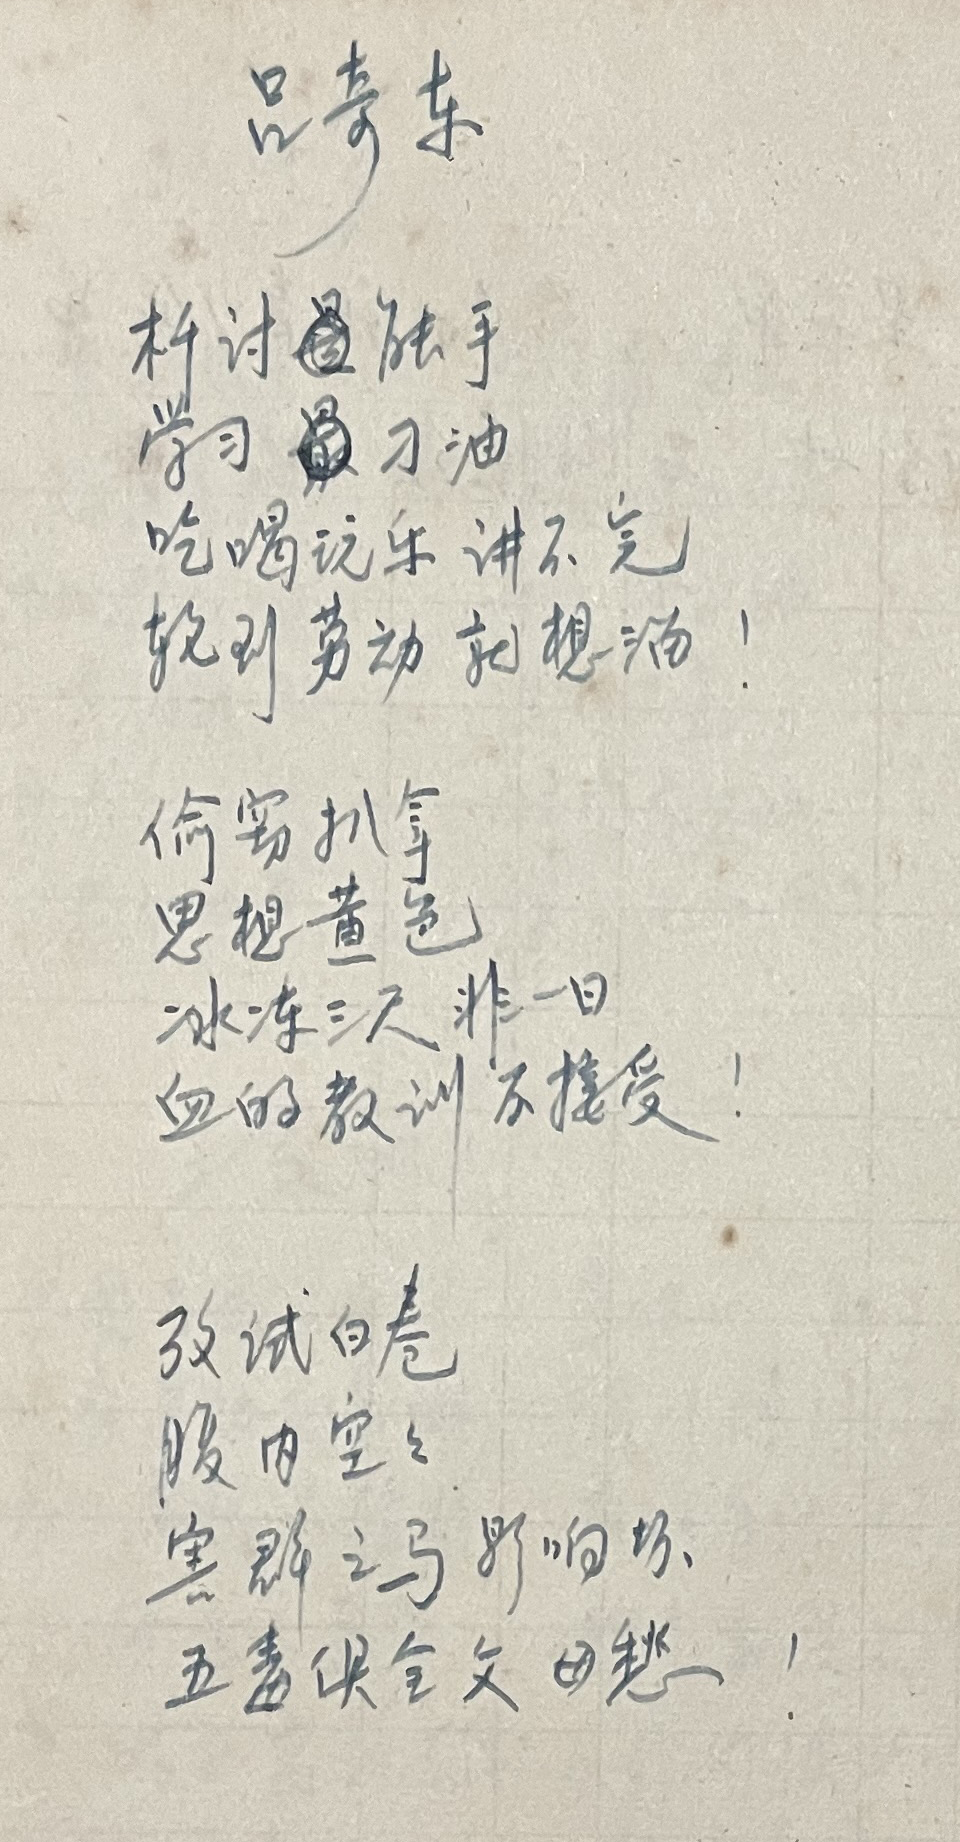 吕奇东
析讨能手
学习刁油
吃喝玩乐讲不完
轮到劳动就想溜！
偷窃扒拿
思想黄色
冰冻三尺非一日
血的教训不接受！
考试白卷
腹内空々
害群之马影响坏
五毒俱全父母愁！